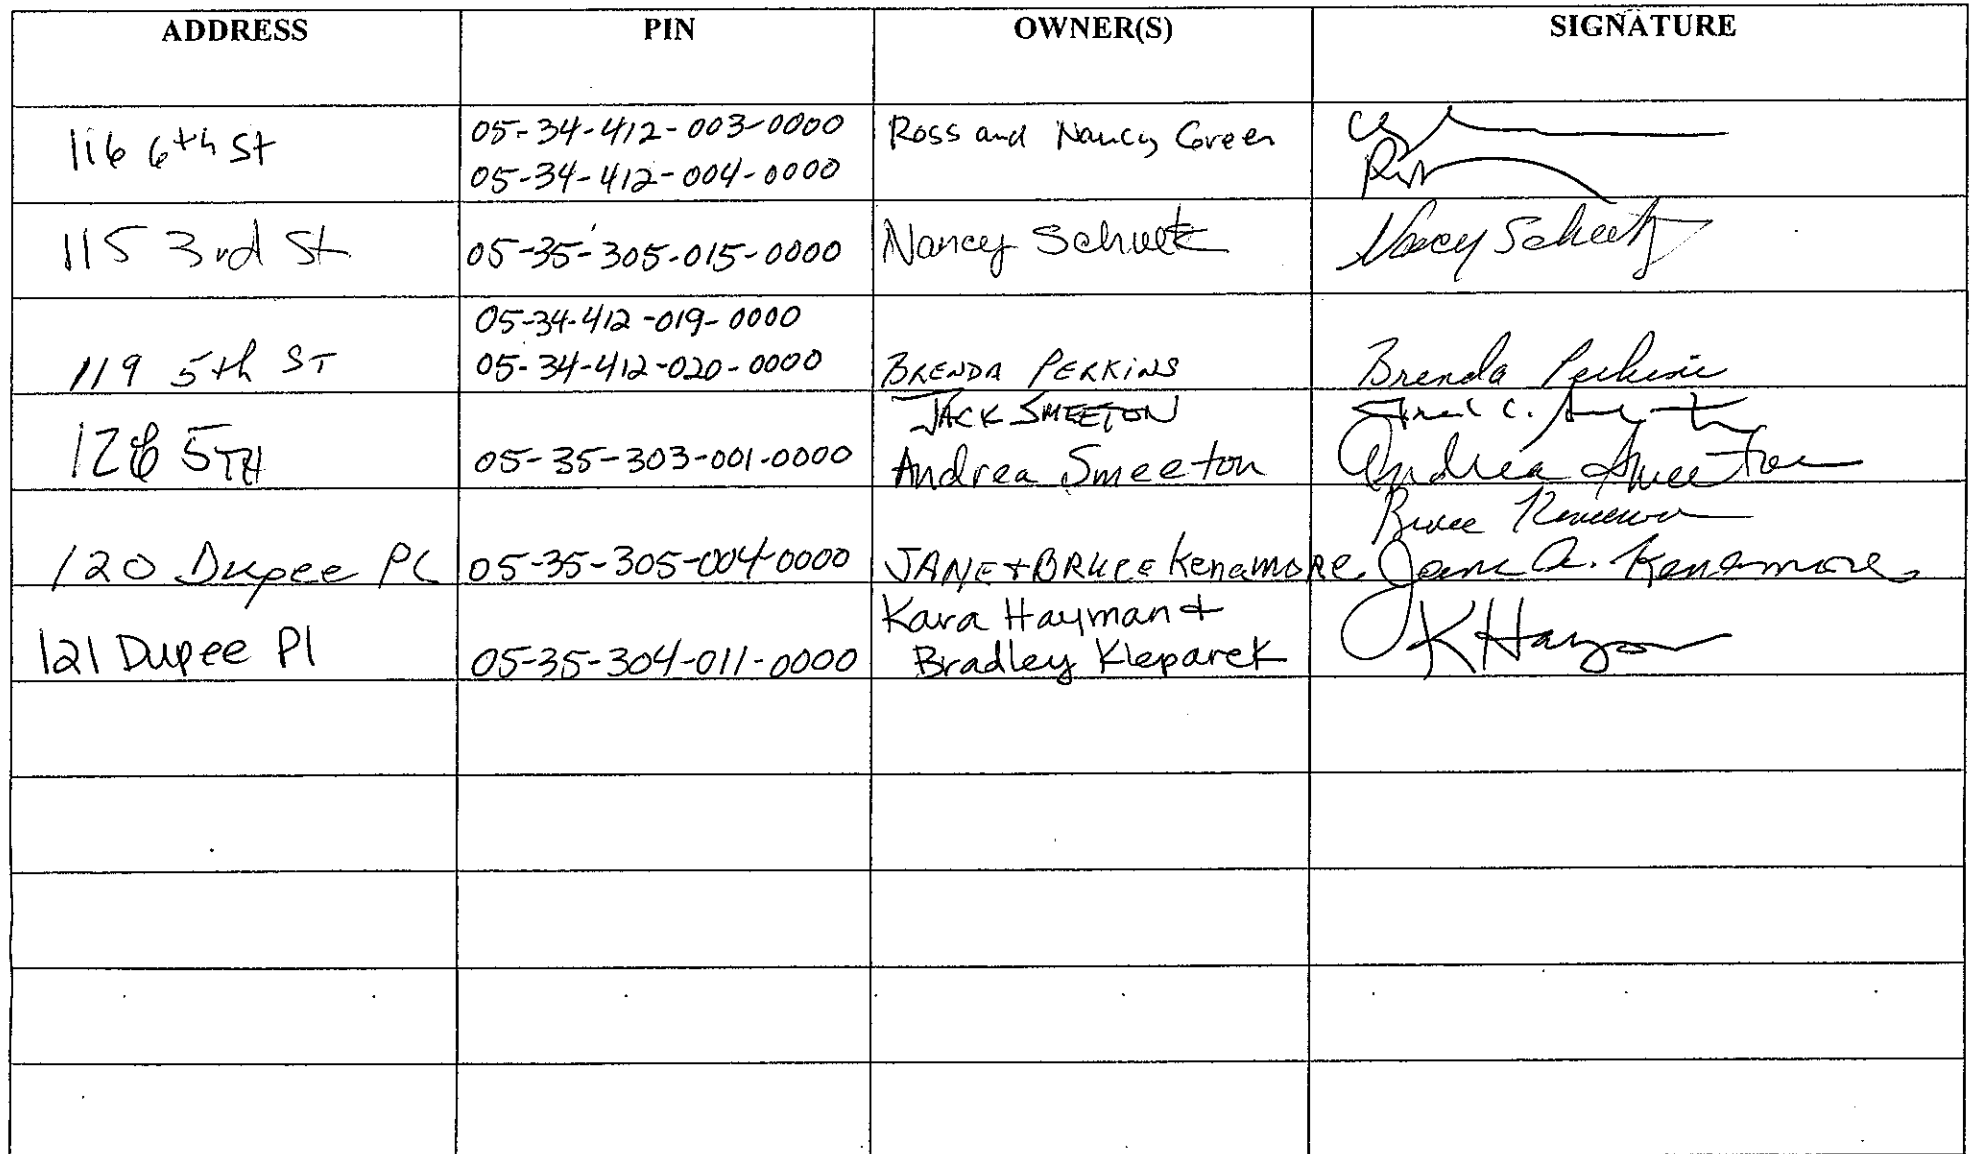 ADDRESS PIN OWNER(S) SIGNATURE
116 6th St
05-34-412-003-0000
05-34-412-004-0000
Ross and Nancy Green
115 3rd St
05-35-305-015-0000
Nancy Schultz
Nancy Schultz
119 5th ST
05-34-412-019-0000
05-34-412-020-0000
BRENDA PERKINS
Brenda Perkins
5TH
05-35-303-001-0000
JACK SMEETON
Andrea Smeeton
Andrea Smeeton
120 Dupee PL
05-35-305-004-0000
JANE + BRUCE Kenamore
Bruce Kenamore
Jane A. Kenamore
121 Dupee Pl
05-35-304-011-0000
Kara Hayman +
Bradley Kleparek
K Hayman